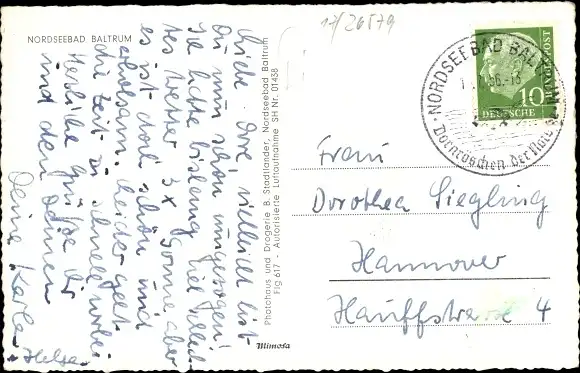 NORDSEEBAD BALTRUM
Liebe Dore, vielleicht bist
Du nun schon umgezogen!
Ich hatte bislang viel
tes Wetter 3x Sonne, aber
es ist doch schön und
erholsam. Leider geht
die Zeit zu schnell vorbei.
Herzliche Grüße Dir
und den Deinen
Deine Karla
Helga
Photohaus und Drogerie B. Stadtlander, Nordseebad Baltrum
Flg 617 - Autorisierte Luftaufnahme SH Nr. 01438
Mimosa
17/26579
NORDSEEBAD BALTRUM
Dornröschen der Nordsee
10
DEUTSCHE BUNDESPOST
Frau
Dorothea Siegling
Hannover
Hauffstrasse 4